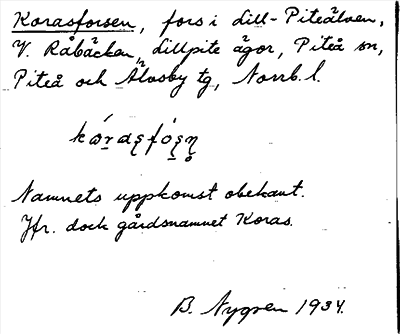 Korasforsen, fors i Lill-Piteälven,
V. Råbäcken, Lillpite ägor, Piteå sn,
Piteå och Älvsby tg, Norrb. l.
Namnets uppkomst obekant.
Jfr. dock gårdsnamnet Koras.
B. Nygren 1934.